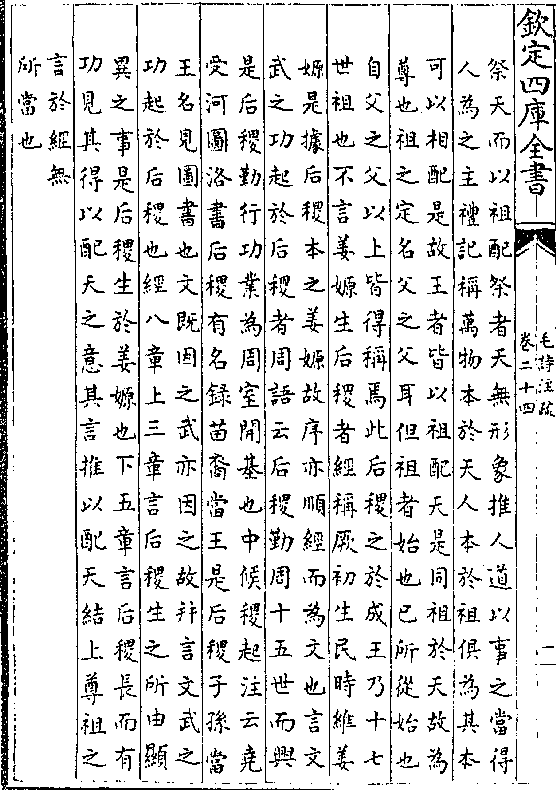 欽定四庫全書
毛詩注疏
卷二十四
祭天而以祖配祭者天無形象推人道以事之當得
人為之主禮記稱萬物本於天人本於祖俱為其本
可以相配是故王者皆以祖配天是同祖於天故為
尊也祖之定名父之父耳但祖者始也已所從始也
自父之父以上皆得稱焉此后稷之於成王乃十七
世祖也不言姜嫄生后稷者經稱厥初生民時維姜
嫄是據后稷本之姜嫄故序亦順經而為文也言文
武之功起於后稷者周語云后稷勤周十五世而興
是后稷勤行功業為周室開基也中候稷起注云堯
受河圖洛書后稷有名録苗裔當王是后稷子孫當
王名見圖書也文既因之武亦因之故并言文武之
功起於后稷也經八章上三章言后稷生之所由顯
異之事是后稷生於姜嫄也下五章言后稷長而有
功見其得以配天之意其言推以配天結上尊祖之
言於經無
所當也